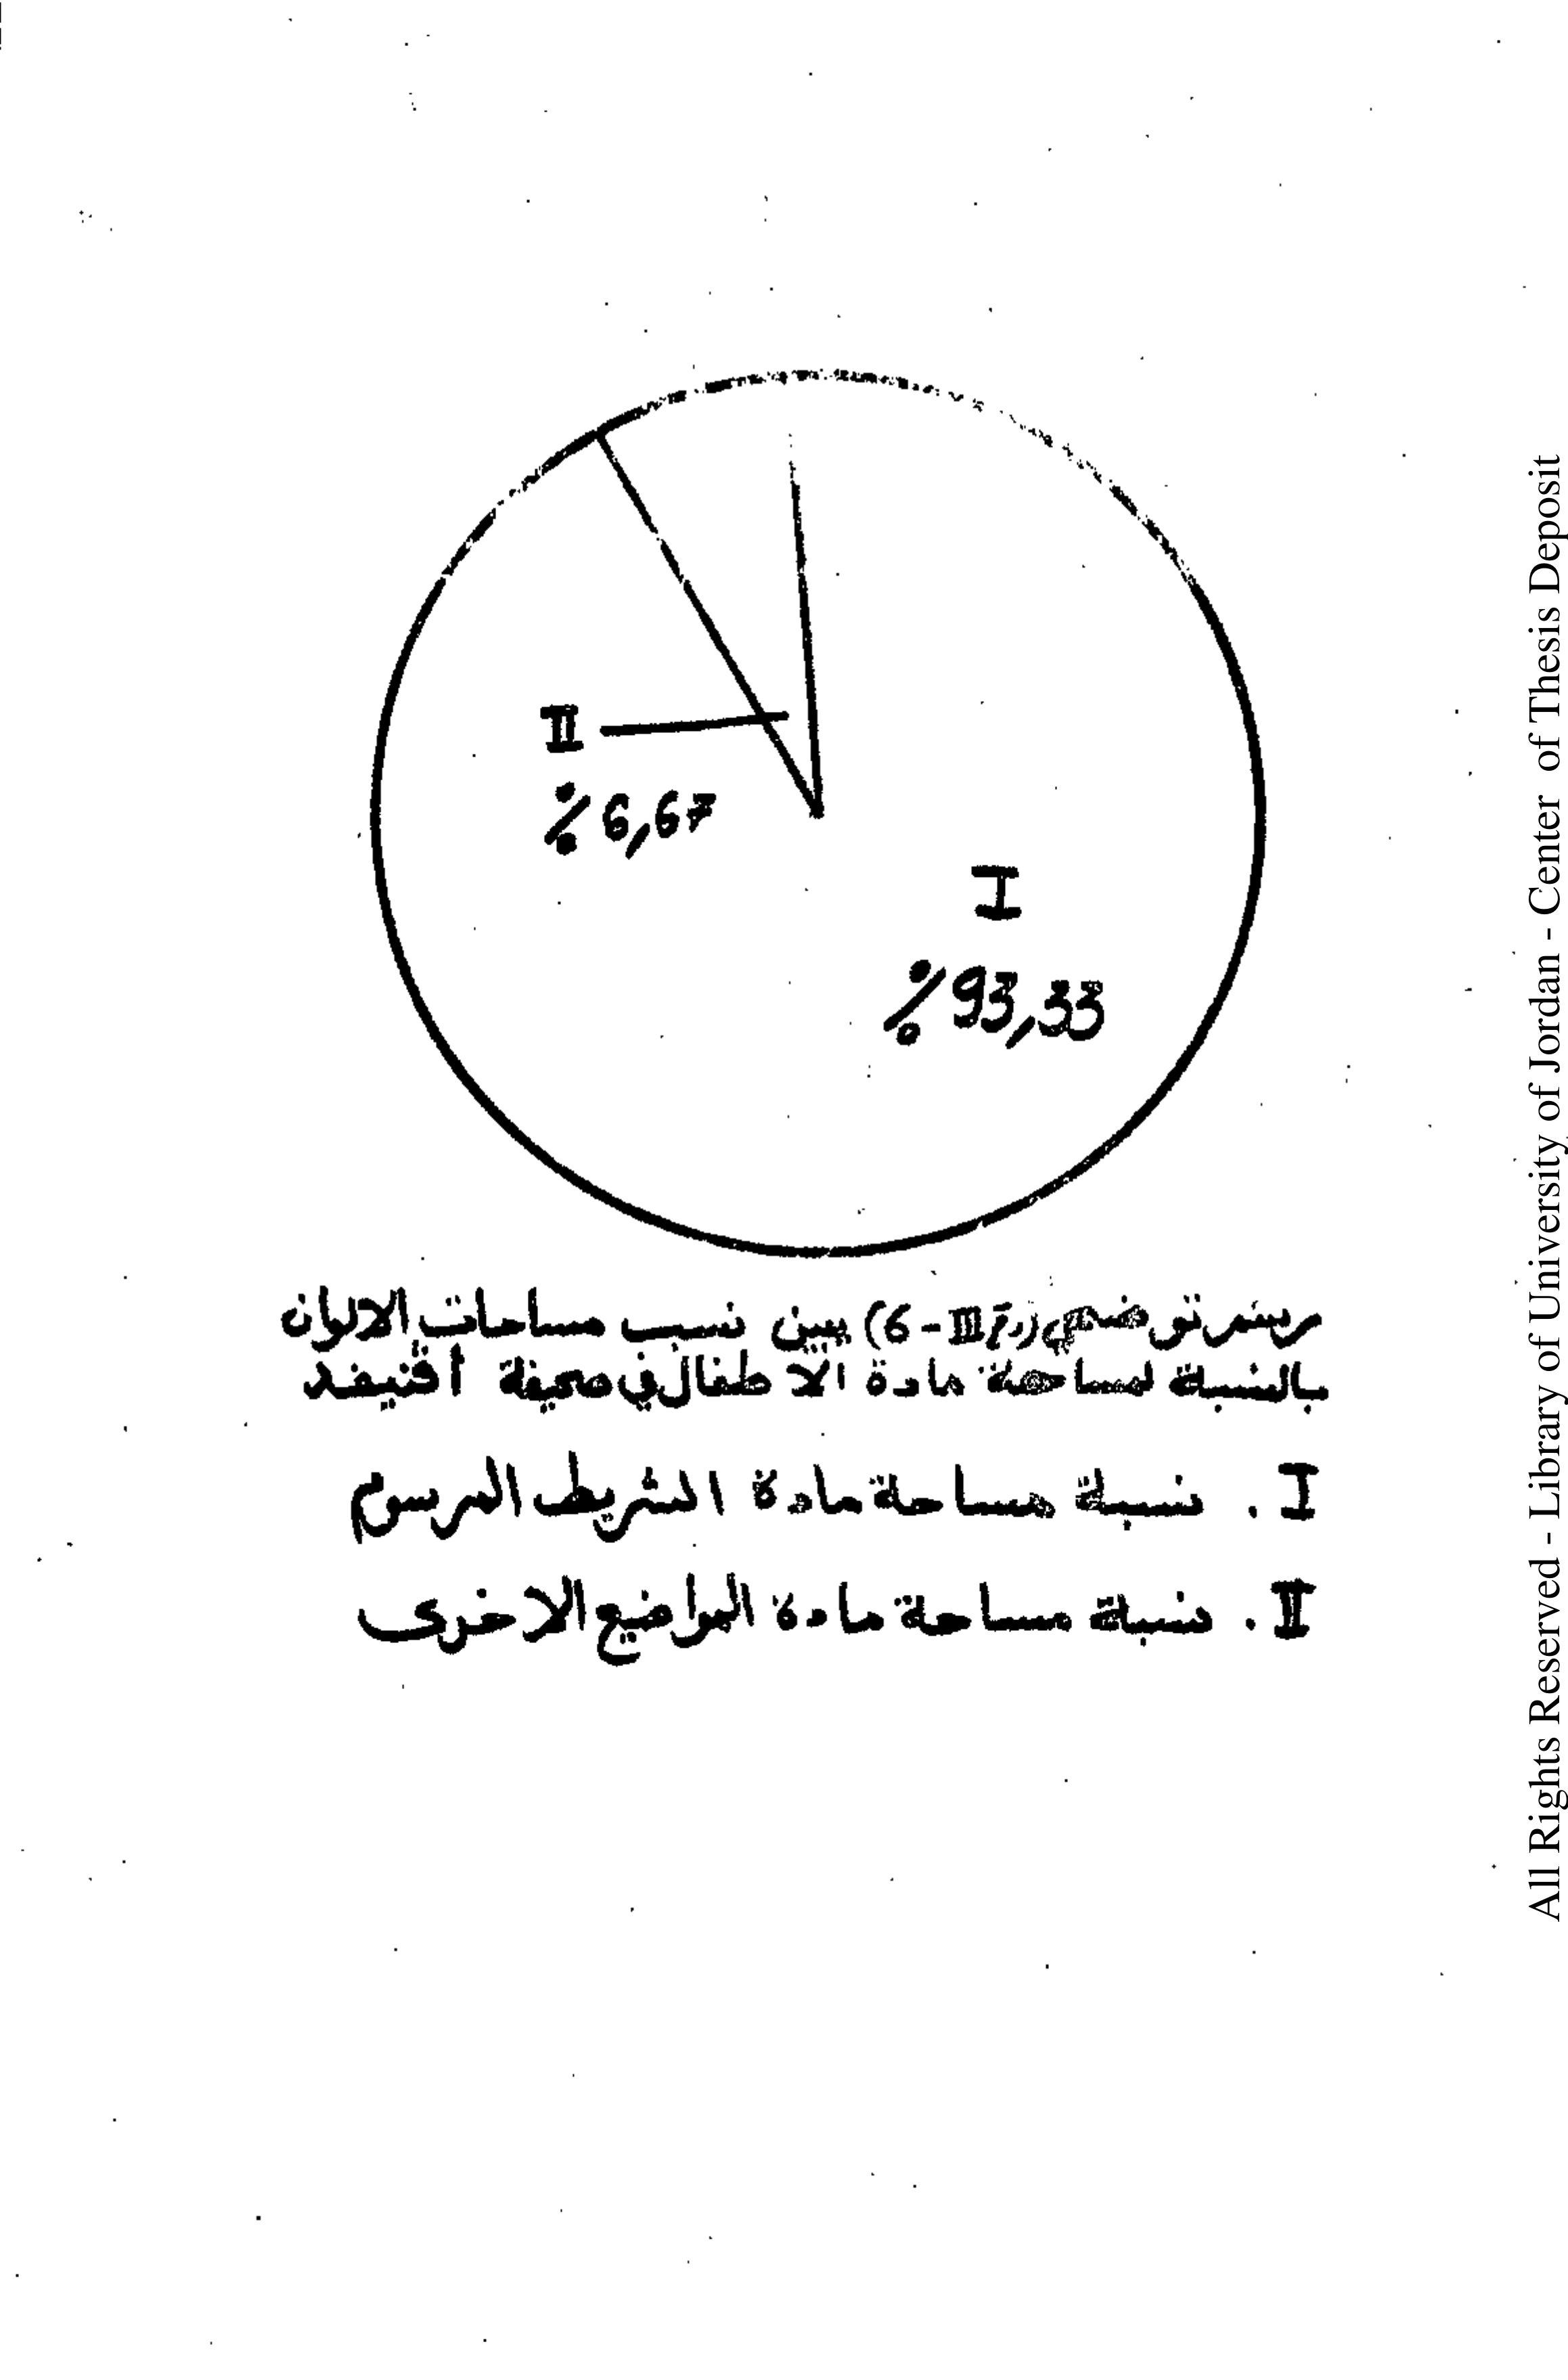 II
% 6,67
I
% 93,33
رسم توضيحي (رقم III - 6) يبين نسب مساحات الالوان
بالنسبة لمساحة مادة الاطفال في صحيفة أڤنيفد
I . نسبة مساحة مادة الشريط المرسوم
II . نسبة مساحة مادة المواضيع الاخرى
All Rights Reserved - Library of University of Jordan - Center of Thesis Deposit